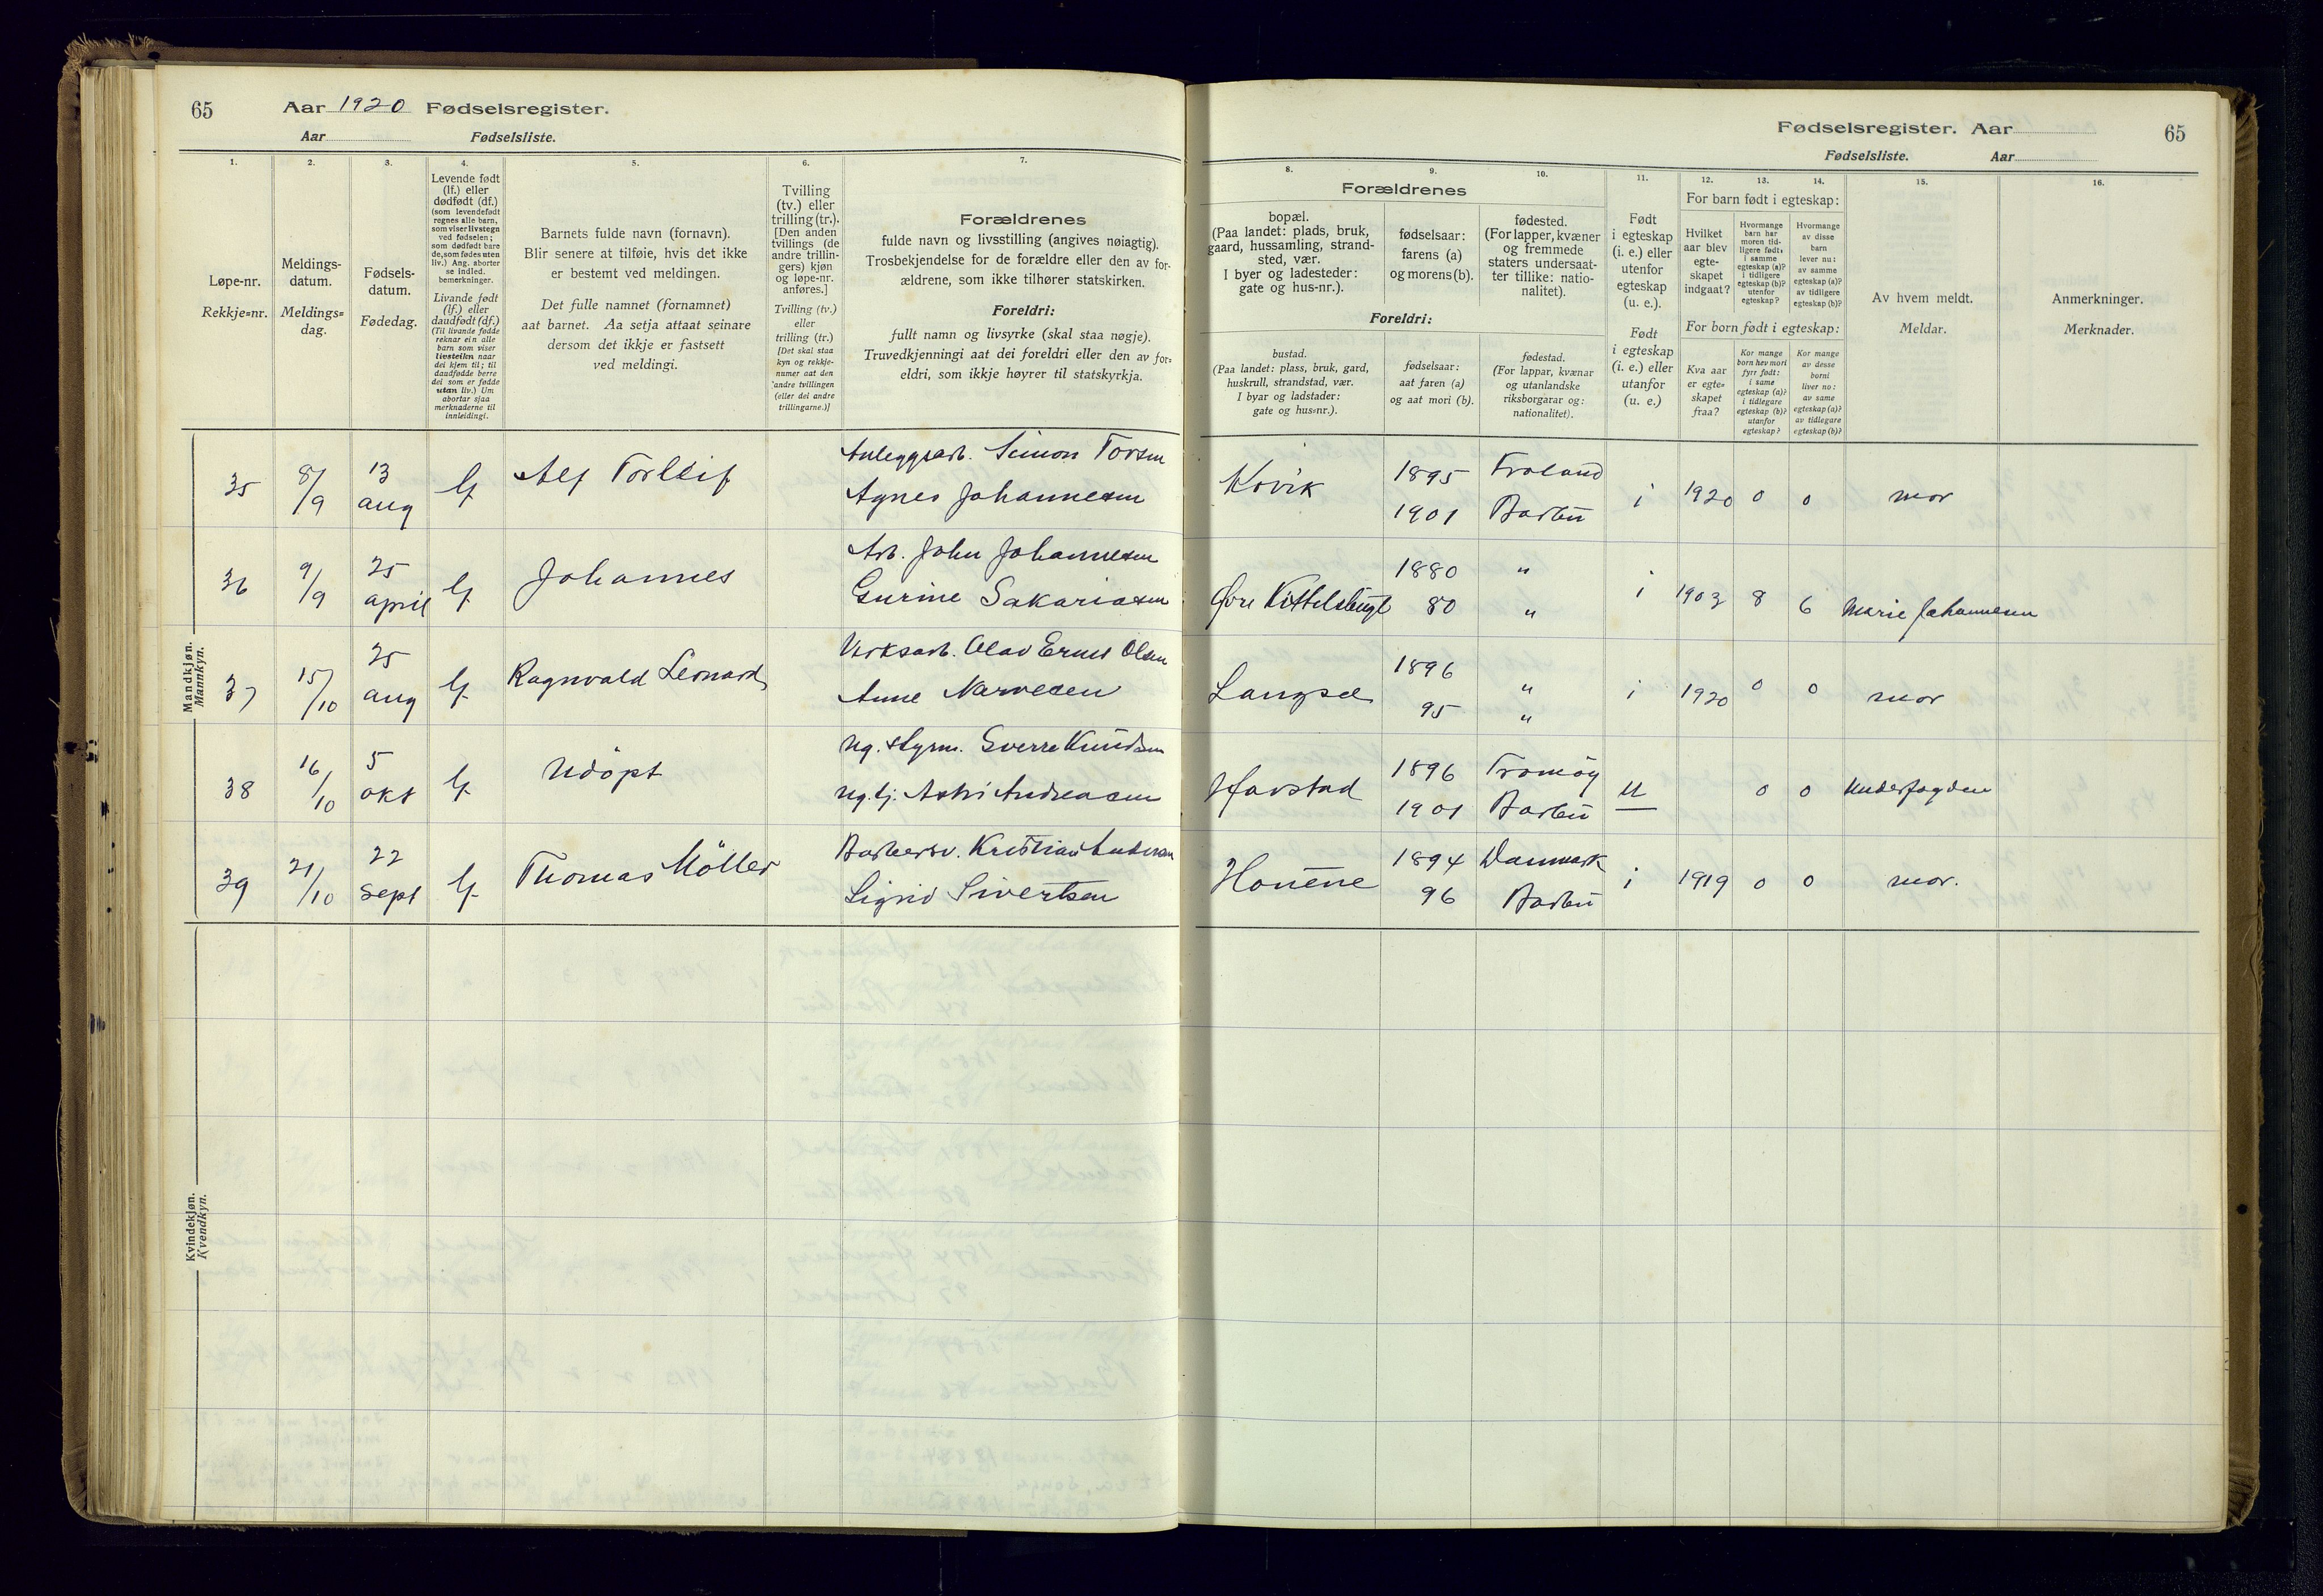 65 Aar 1920 Fødselsregister.
Aar Fødselsliste.
Fødselsregister. Aar 65
Fødselsliste. Aar
1.
Løpe-nr.
Rekkje=nr.
2.
Meldings-
datum.
Meldings=
dag.
3.
Fødsels-
datum.
Fødedag.
4.
Levende født
(lf.) eller
dødfødt (df.)
(som levendefødt
regnes alle barn,
som viser livstegn
ved fødselen;
som dødfødt bare
de, som fødes uten
liv.) Ang. aborter
se indled.
bemerkninger.
Livande født
(lf.) eller
daudfødt (df.)
(Til livande fødde
reknar ein alle
barn som viser
livsteikn naar
dei kjem til; til
daudfødde berre
dei som er fødde
utan liv.) Um
abortar sjaa
merknaderne til
innleidingi.
5.
Barnets fulde navn (fornavn).
Blir senere at tilføie, hvis det ikke
er bestemt ved meldingen.
Det fulle namnet (fornamnet)
aat barnet. Aa setja attaat seinare
dersom det ikkje er fastsett
ved meldingi.
6.
Tvilling
(tv.) eller
trilling (tr.).
[Den anden
tvillings (de
andre trillin-
gers) kjøn
og løpe-nr.
anføres.]
Tvilling (tv.)
eller
trilling (tr.)
[Det skal staa
kyn og rekkje-
numer aat den
andre tvillingen
(eller dei andre
trillingarne.)]
7.
Forældrenes
fulde navn og livsstilling (angives nøiagtig).
Trosbekjendelse for de forældre eller den av for-
ældrene, som ikke tilhører statskirken.
Foreldri:
fullt namn og livsyrke (skal staa nøgje).
Truvedkjenningi aat dei foreldri eller den av for=
eldri, som ikkje høyrer til statskyrkja.
8.
Forældrenes
bopæl.
(Paa landet: plads, bruk,
gaard, hussamling, strand-
sted, vær.
I byer og ladesteder:
gate og hus-nr.).
Foreldri:
bustad.
(Paa landet: plass, bruk, gard,
huskrull, strandstad, vær.
I byar og ladstader:
gate og hus=nr.).
9.
fødselsaar:
farens (a)
og morens (b).
fødselsaar:
aat faren (a)
og aat mori (b).
10.
fødested.
(For lapper, kvæner
og fremmede
staters undersaat-
ter tillike: natio-
nalitet).
fødestad.
(For lappar, kvænar
og utanlandske
riksborgarar og:
nationalitet).
11.
Født
i egteskap
(i. e.) eller
utenfor
egteskap
(u. e.).
Født
i egteskap
(i. e.) eller
utanfor
(u. e.)
12.
For barn født i egteskap:
Hvilket
aar blev
egte-
skapet
indgaat?
For born født i egteskap:
Kva aar
er egte=
skapet
fraa?
13.
Hvormange
barn har
moren tid-
ligere født:
i samme
egteskap (a)?
i tidligere
egteskap (b)?
utenfor
egteskap?
Kor mange
born hev mori
fyrr født:
i same
egteskap (a)?
i tidlegare
egteskap (b)?
utanfor
egteskap?
14.
Hvormange
av disse
barn
lever nu:
av samme
egteskap (a)?
av tidligere
egteskap (b)?
Kor mange
av desse
borni
liver no:
av same
egteskap (a)?
av tidlegare
egteskap (b)?
15.
Av hvem meldt.
Meldar.
16.
Anmerkninger.
Merknader.
Mandkjøn.
Mannkyn.
35 8/9 13 aug lf Alf Torleif Anleggsarb. Simon Torsen Kovik 1895 Froland i 1920 0 0 mor
Agnes Johannesen 1901 Barbu
36 9/9 25 april lf Johannes Arb. John Johannesen Øvre Kittelsbugt 1880 " i 1903 8 6 Marie Johannesen
Gurine Sakariasen 80 "
37 15/10 25 aug lf Ragnvald Leonard Verksarb. Olav Ernst Olsen Langsæ 1896 " i 1920 0 0 mor
Anne Narvesen 95 "
38 16/10 5 okt lf Udöpt Ug. styrm. Sverre Knudsen Havstad 1896 Tromöy u 0 0 Underfogden
Ug. tj. Astri Andreasen 1901 Barbu
39 21/10 22 sept lf Thomas Möller Barbersv. Kristian Andersen 1894 Danmark i 1919 0 0 mor.
Sigrid Sivertsen 96 Barbu
Kvindekjøn.
Kvendkyn.